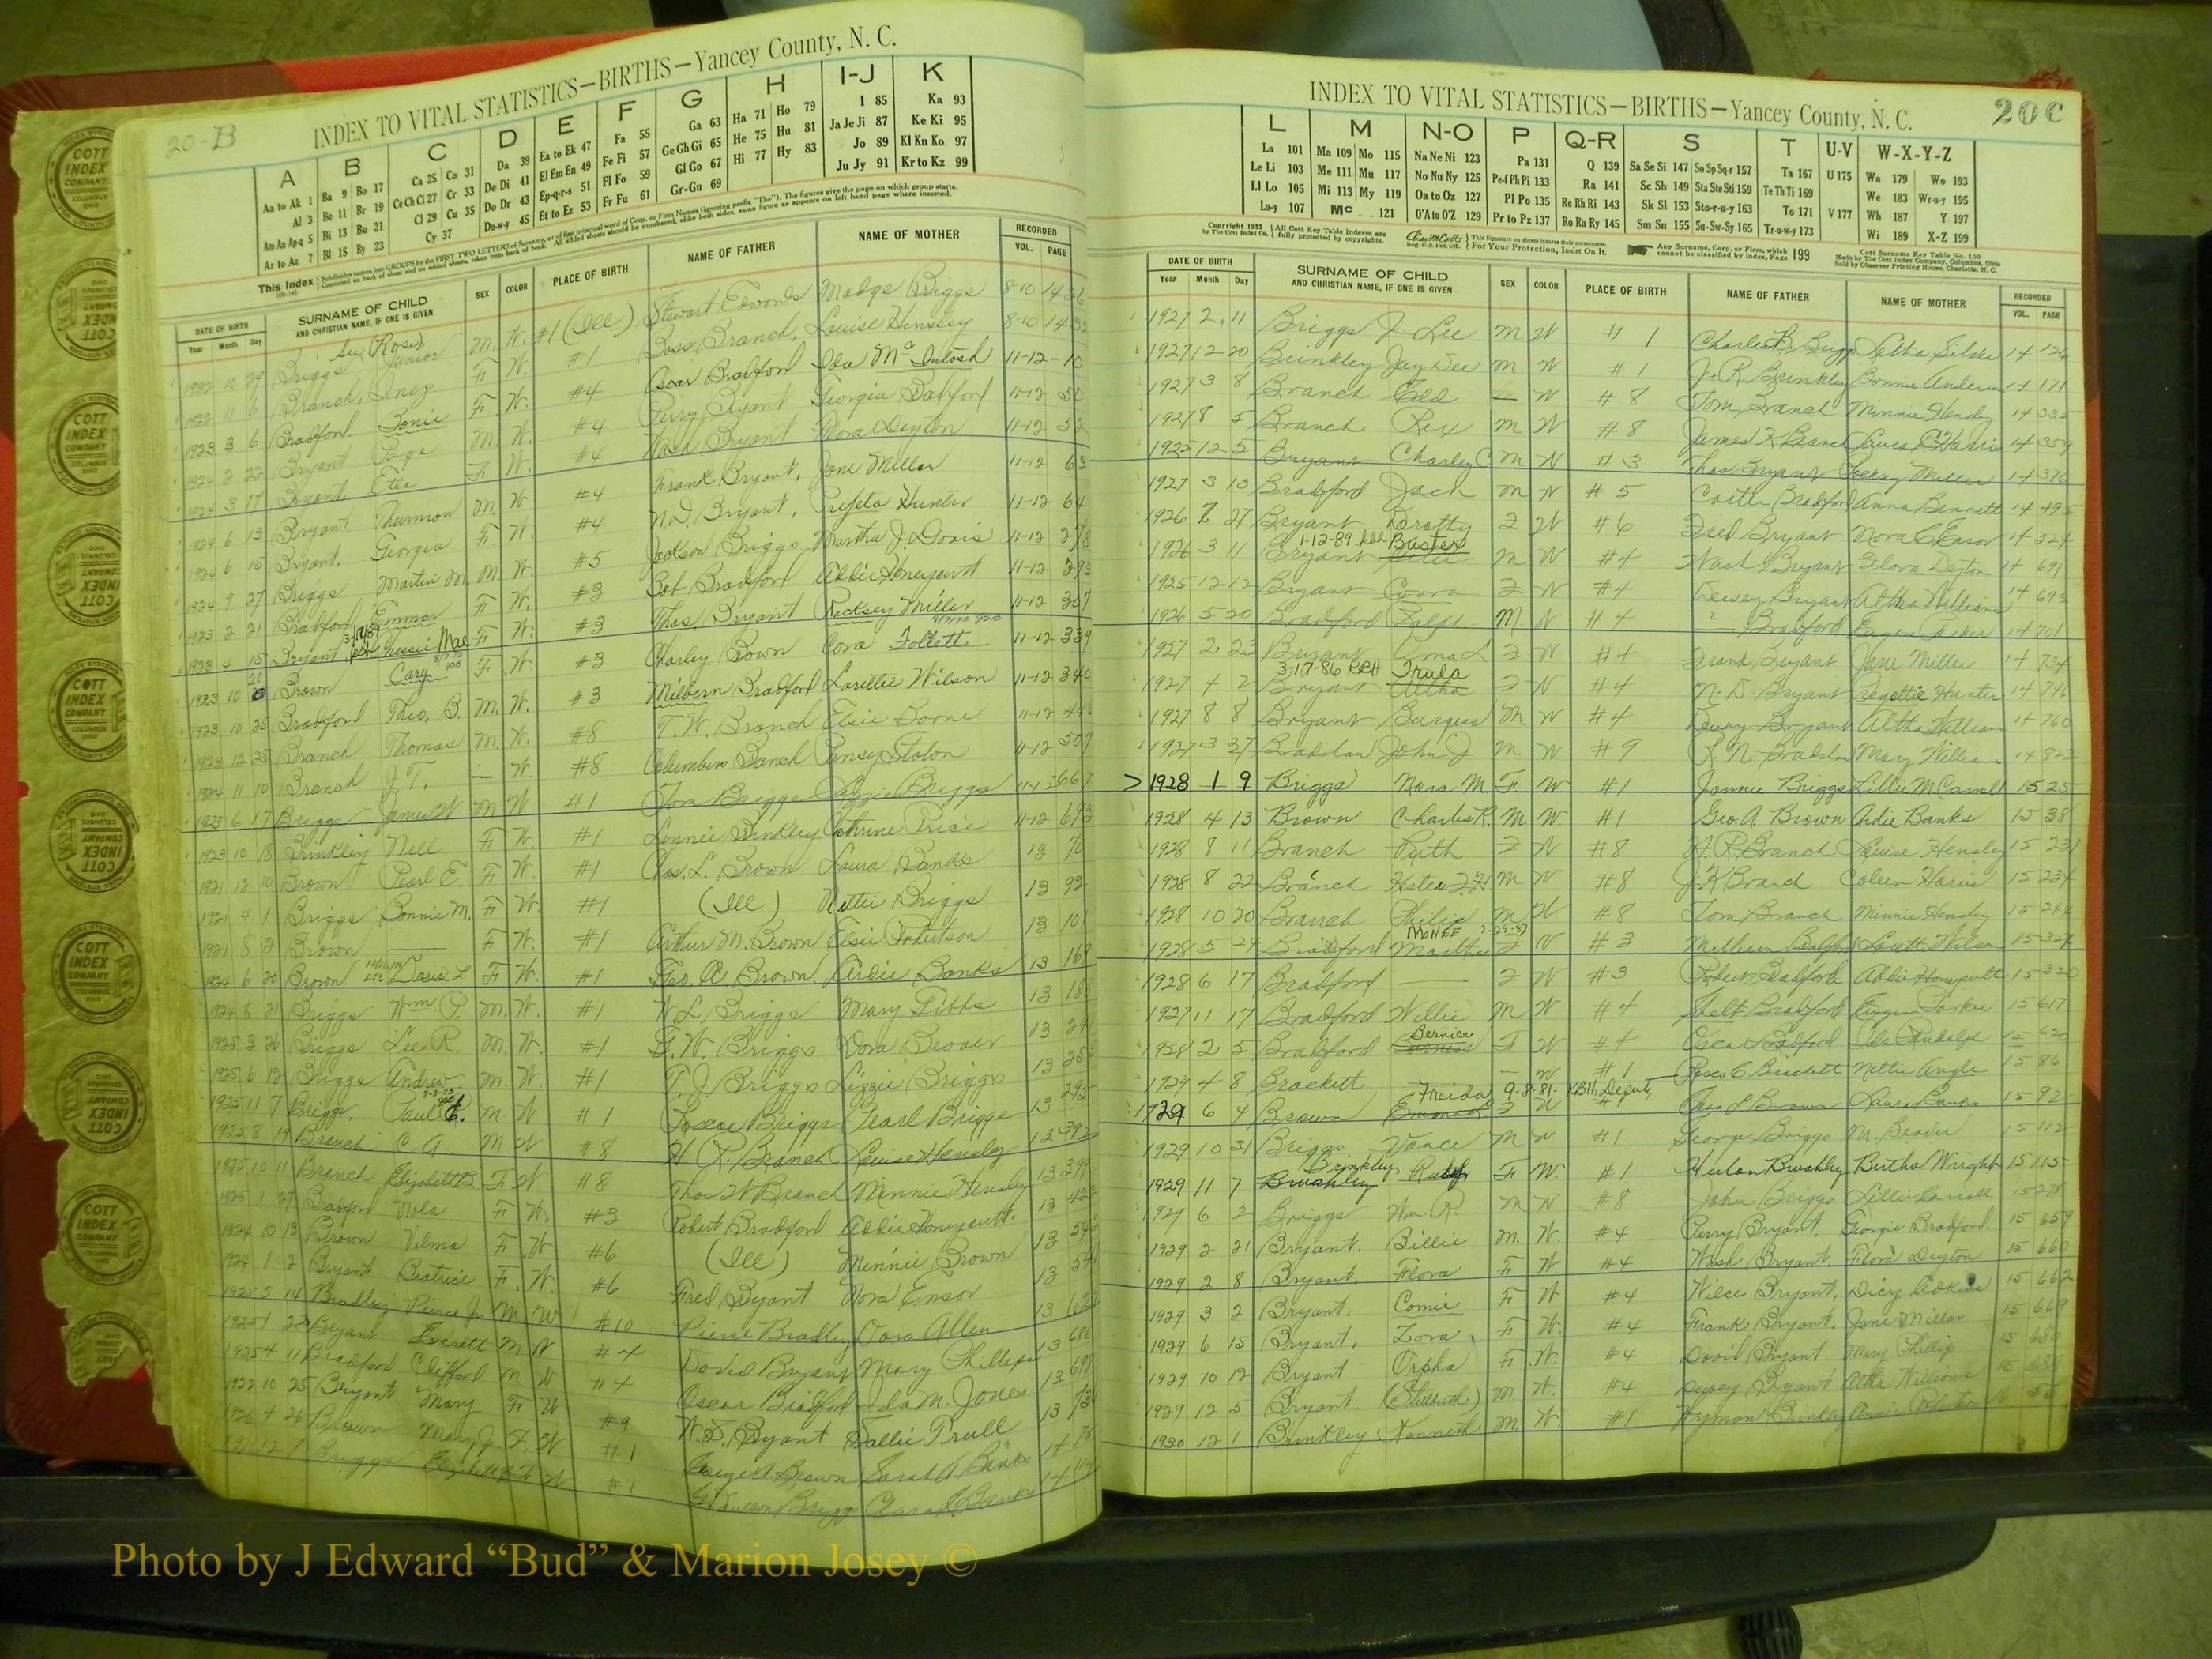 20-B
INDEX TO VITAL STATISTICS—BIRTHS—Yancey County, N. C.
A B C D E F G H I-J K
Aa to Ak 1 Ba 9 Bo 17 Ca 25 Co 31 Da 39 Ea to Ek 47 Fa 55 Ga 63 Ha 71 Ho 79 I 85 Ka 93
Al 3 Be 11 Br 19 Ce Ch Ci 27 Cr 33 De Di 41 El Em En 49 Fe Fi 57 Ge Gh Gi 65 He 75 Hu 81 Ja Je Ji 87 Ke Ki 95
Am An Ap-q 5 Bi 13 Bu 21 Cl 29 Cu 35 Do Dr 43 Ep-q-r-s 51 Fl Fo 59 Gl Go 67 Hi 77 Hy 83 Jo 89 Kl Kn Ko 97
Ar to Az 7 Bl 15 By 23 Cy 37 Du-w-y 45 Et to Ez 53 Fr Fu 61 Gr-Gu 69 Ju Jy 91 Kr to Kz 99
DATE OF BIRTH SURNAME OF CHILD SEX COLOR PLACE OF BIRTH NAME OF FATHER NAME OF MOTHER RECORDED
Year Month Day AND CHRISTIAN NAME, IF ONE IS GIVEN VOL. PAGE
Briggs Junior M. W. #1 (Ill) Stewart Edwards Madge Briggs 8-10
1922 11 6 Branch, Inez F. W. #1 Boss Branch, Louise Hensley 8-10
1923 3 6 Bradford Tonie F. W. #4 Oscar Bradford Ida McIntosh 11-12 10
1924 2 22 Bryant Page M. W. #4 Perry Bryant Georgia Bradford 11-12 50
1924 3 17 Bryant, Etta F. W. #4 Wash Bryant Flora Deyton 11-12 52
1924 6 13 Bryant Thurmon M. W. #4 Frank Bryant, Jane Miller 11-12 63
1924 6 15 Bryant, Georgia F. W. #4 N.D. Bryant, Hunter 11-12 64
1924 9 27 Briggs Martin M. M. W. #5 Jackson Briggs Martha J. Davis 11-12
1923 2 21 Bradford Emma F. W. #3 Bob Bradford Abbie Honeycutt 11-12
1923 4 15 Bryant Chessie Mae F. W. #3 Thos. Bryant Rocksey Miller 11-12 307
1923 10 Brown Cary F. W. #3 Charley Brown Cora Follett 11-12 339
1923 10 25 Bradford Theo. B. M. W. #3 Milbern Bradford Lorettie Wilson 11-12 340
1923 12 25 Branch Thomas M. W. #8 T. W. Branch Elsie Boone 11-12
1924 11 10 Branch J. T. — W. #8 Columbus Branch Pansey 11-12 507
1923 6 17 Briggs James W M W #1 Tom Briggs Lizzie Briggs 11-12
1923 10 18 Brinkley Nell F. W. #1 Lennie Brinkley Cathrine Price 11-12
1921 12 10 Brown Pearl E. F. W. #1 Chas. L. Brown Laura Banks 13 70
1921 4 1 Briggs Bonnie M. F. W. #1 (Ill) Nettie Briggs 13 92
1921 8 2 Brown —— F. W. #1 Arthur M. Brown Elsie Robertson 13 101
1924 6 20 Brown Doris L F. W. #1 Geo. A Brown, Ardie Banks 13
1924 8 21 Briggs Wm P. M. W. #1 W. L. Briggs Mary Tibbs 13
1925 3 26 Briggs Lee R. M. W. #1 G. W. Briggs Dora Beaver 13
1925 6 12 Briggs Andrew M. W. #1 T. J. Briggs Lizzie Briggs 13
1925 11 7 Briggs, Paul M W #1 Roscoe Briggs Pearl Briggs 13
1925 8 19 Branch C A M W #8 H. R. Branch Louise Hensley 13
1925 10 11 Branch Elizabeth B. F W #8 Thos W Branch Minnie Hensley 13
1925 1 27 Bradford Nola F W. #3 Robert Bradford Abbie Honeycutt. 13
1924 10 13 Brown Velma F. W #6 (Ill) Minnie Brown 13
1924 1 2 Bryant Beatrice F. W. #6 Fred Bryant Nora Ensor 13
1925 5 14 Bradley Pierce Jr M W #10 Pierce Bradley Dora Allen 13
1925 1 Bryant Everett M W #4 David Bryant Mary Phillips 13
1925 4 11 Bradford Clifford M W #4 Oscar Bradford Ida M. Jones 13
1922 10 25 Bryant Mary F W #9 W. S. Bryant Sallie Trull 13
1926 4 26 Brown Mary J. F. W #1 George A Brown Sarah A Banks 14
Briggs #1 Briggs Banks 14
20C
INDEX TO VITAL STATISTICS—BIRTHS—Yancey County, N. C.
L M N-O P Q-R S T U-V W-X-Y-Z
La 101 Ma 109 Mo 115 Na Ne Ni 123 Pa 131 Q 139 Sa Se Si 147 So Sp Sq-r 157 Ta 167 U 175 Wa 179 Wo 193
Le Li 103 Me 111 Mu 117 No Nu Ny 125 Pe-f Ph Pi 133 Ra 141 Sc Sh 149 Sta Ste Sti 159 Te Th Ti 169 We 183 Wr-u-y 195
Ll Lo 105 Mi 113 My 119 Oa to Oz 127 Pl Po 135 Re Rh Ri 143 Sk Sl 153 Sto-r-u-y 163 To 171 V 177 Wh 187 Y 197
Lu-y 107 Mc 121 O'A to O'Z 129 Pr to Pz 137 Ro Ru Ry 145 Sm Sn 155 Su-Sw-Sy 165 Tr-u-w-y 173 Wi 189 X-Z 199
Copyright 1933 by The Cott Index Co. All Cott Key Table Indexes are fully protected by copyrights. For Your Protection, Insist On It. Any Surname, Corp. or Firm, which cannot be classified by Index, Page 199
DATE OF BIRTH SURNAME OF CHILD SEX COLOR PLACE OF BIRTH NAME OF FATHER NAME OF MOTHER RECORDED
Year Month Day AND CHRISTIAN NAME, IF ONE IS GIVEN VOL. PAGE
1927 2 11 Briggs J. Lee M W #1 Charles Briggs Letha Silver 14
1927 12 20 Brinkley Jay Dee M W #1 J. R. Brinkley Bonnie Anderson 14 171
1927 3 8 Branch Edd — W #8 Tom Branch Minnie Hensley 14
1927 8 5 Branch Rex M W #8 James K Branch 14 359
1925 12 5 Bryant Charley C M W #3 Thos Bryant Miller 14 376
1927 3 13 Bradford Jack M W #5 Bradford Anna Bennett 14
1926 7 27 Bryant Dorothy F W #6 Fred Bryant Nora C Ensor 14 524
1-12-89 Buster
1926 3 11 Bryant M W #4 Wash Bryant Flora Deyton 14 691
1925 12 12 Bryant F W #4 Dewey Bryant Altha Williams 14 693
1926 5 20 Bradford Ralph M W #4 Bradford Parker 14 701
1927 2 23 Bryant F W #4 Frank Bryant Jane Miller 14 734
3-17-86 KBH Trula
1927 4 2 Bryant Altha F W #4 N. D Bryant Hunter 14
1927 8 8 Bryant Burgess M W #4 Dewey Bryant Altha William 14 760
1927 3 Bradshaw John J M W #9 R. N. Bradshaw Mary William 14 823
> 1928 1 9 Briggs Nora M F W #1 Jonnie Briggs Lillie M Carroll 15 25
1928 4 13 Brown Charles R. M W. #1 Geo. A Brown Ardie Banks 15 38
1928 8 11 Branch Ruth F W #8 H. R. Branch Louise Hensley 15
1928 8 22 Branch M W #8 J. K Branch Coleen Harris 15 234
1928 10 20 Branch Philip M W #8 Tom Branch Minnie Hensley 15
McNEE
1928 5 24 Bradford Martha F W #3 Bradford Wilson 15 327
1928 6 17 Bradford —— F W #3 Robert Bradford Abbie Honeycutt 15 330
1927 11 17 Bradford Willie M W #4 Shelt Bradford Parker 15 617
Bernice
1928 2 5 Bradford F W #4 Oscar Bradford Ida Randolph
1929 4 8 Brackett — W #1 Brackett Nettie Angle 15 86
Freida 9-8-81- KBH, Deputy
1929 6 4 Brown F W #1 Brown Laura Banks 15 92
1929 10 31 Briggs Vance M W #1 George Briggs M. Beaver 15 112
Brinkley
1929 11 7 Ruby F W. #1 Hulon Bertha Wright 15 115
1929 6 2 Briggs Wm. R. M W #8 John Briggs Lillie Carroll 15
1929 2 21 Bryant. Billie M. W. #4 Perry Bryant, Georgie Bradford. 15 659
1929 2 8 Bryant. Flora F W #4 Wash Bryant, Flora Deyton 15 660
1929 3 2 Bryant. Comie F W #4 Wilce Bryant, Dicy Adkins 15 662
1929 6 15 Bryant. Zora. F W. #4 Frank Bryant. Jane Miller 15 669
1929 10 12 Bryant Orpha F. W. #4 David Bryant Mary Phillip 15
1929 12 5 Bryant. (Stillbirth) M. W. #4 Dewey Bryant Altha Williams 15
1930 12 1 Brinkley Kenneth M. W. #1 Hyman Brinkley
COTT INDEX COMPANY COLUMBUS OHIO
Photo by J Edward “Bud” & Marion Josey ©